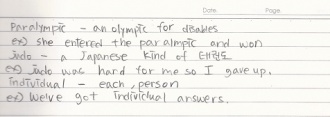 Date Page
Paralympic - an olympic for disables
ex) she entered the paralmpic and won
judo - a Japanese kind of 태권도
ex) judo was hard for me so I gave up.
individual - each, person
ex) Welve got individual answers.